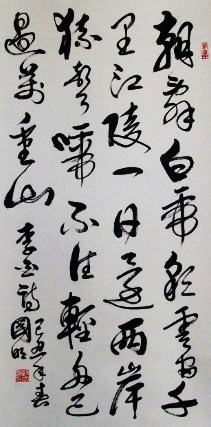 朝辭白帝彩雲間千
里江陵一日還兩岸
猿聲啼不住輕舟已
過萬重山
李白詩
己丑年春
國明